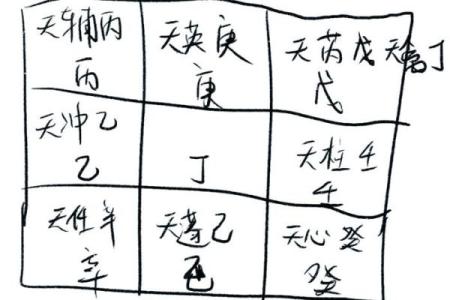 天辅丙
丙
天英庚
庚
天芮戊 天禽丁
戊
天冲乙
乙
丁
天柱壬
壬
天任辛
辛
天蓬己
己
天心癸
癸